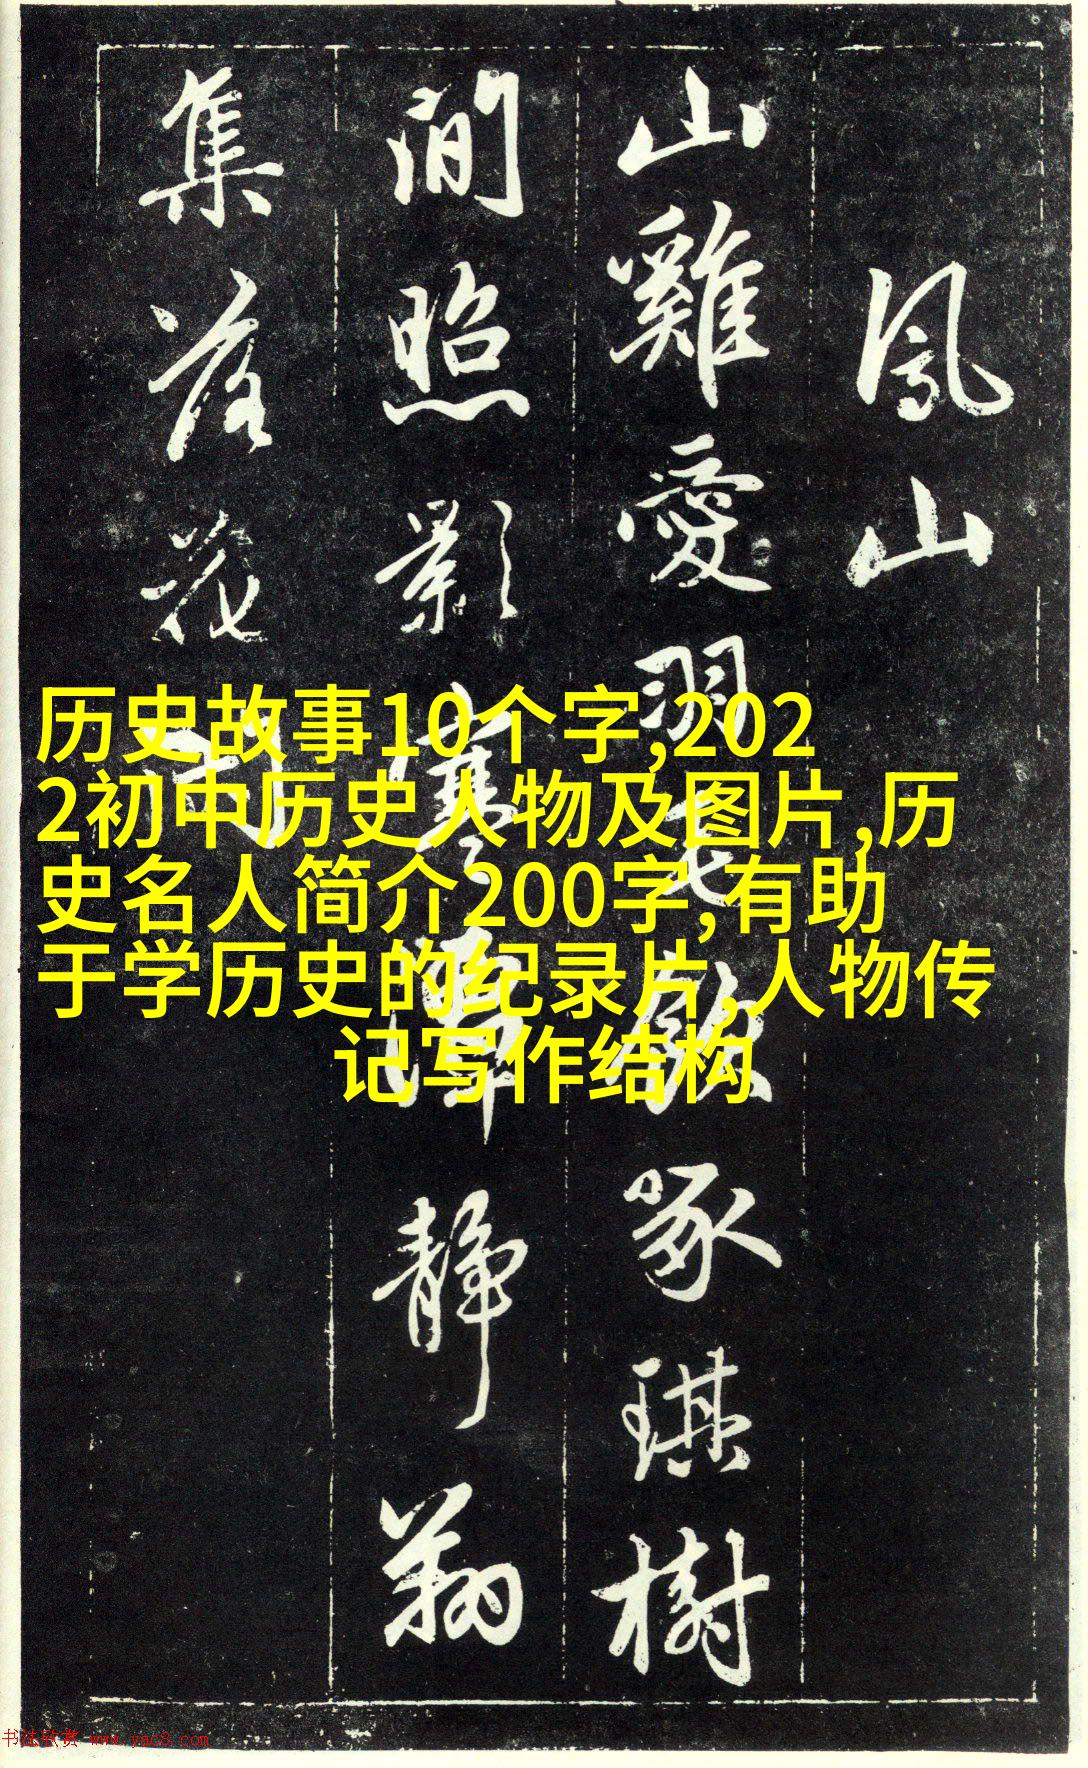 鳳山
山雞愛羽毛飲啄琪樹
間照影寒潭靜翔
集落花
历史故事10个字,202
2初中历史人物及图片,历
史名人简介200字,有助
于学历史的纪录片,人物传
记写作结构
书法欣赏 www.yac8.com